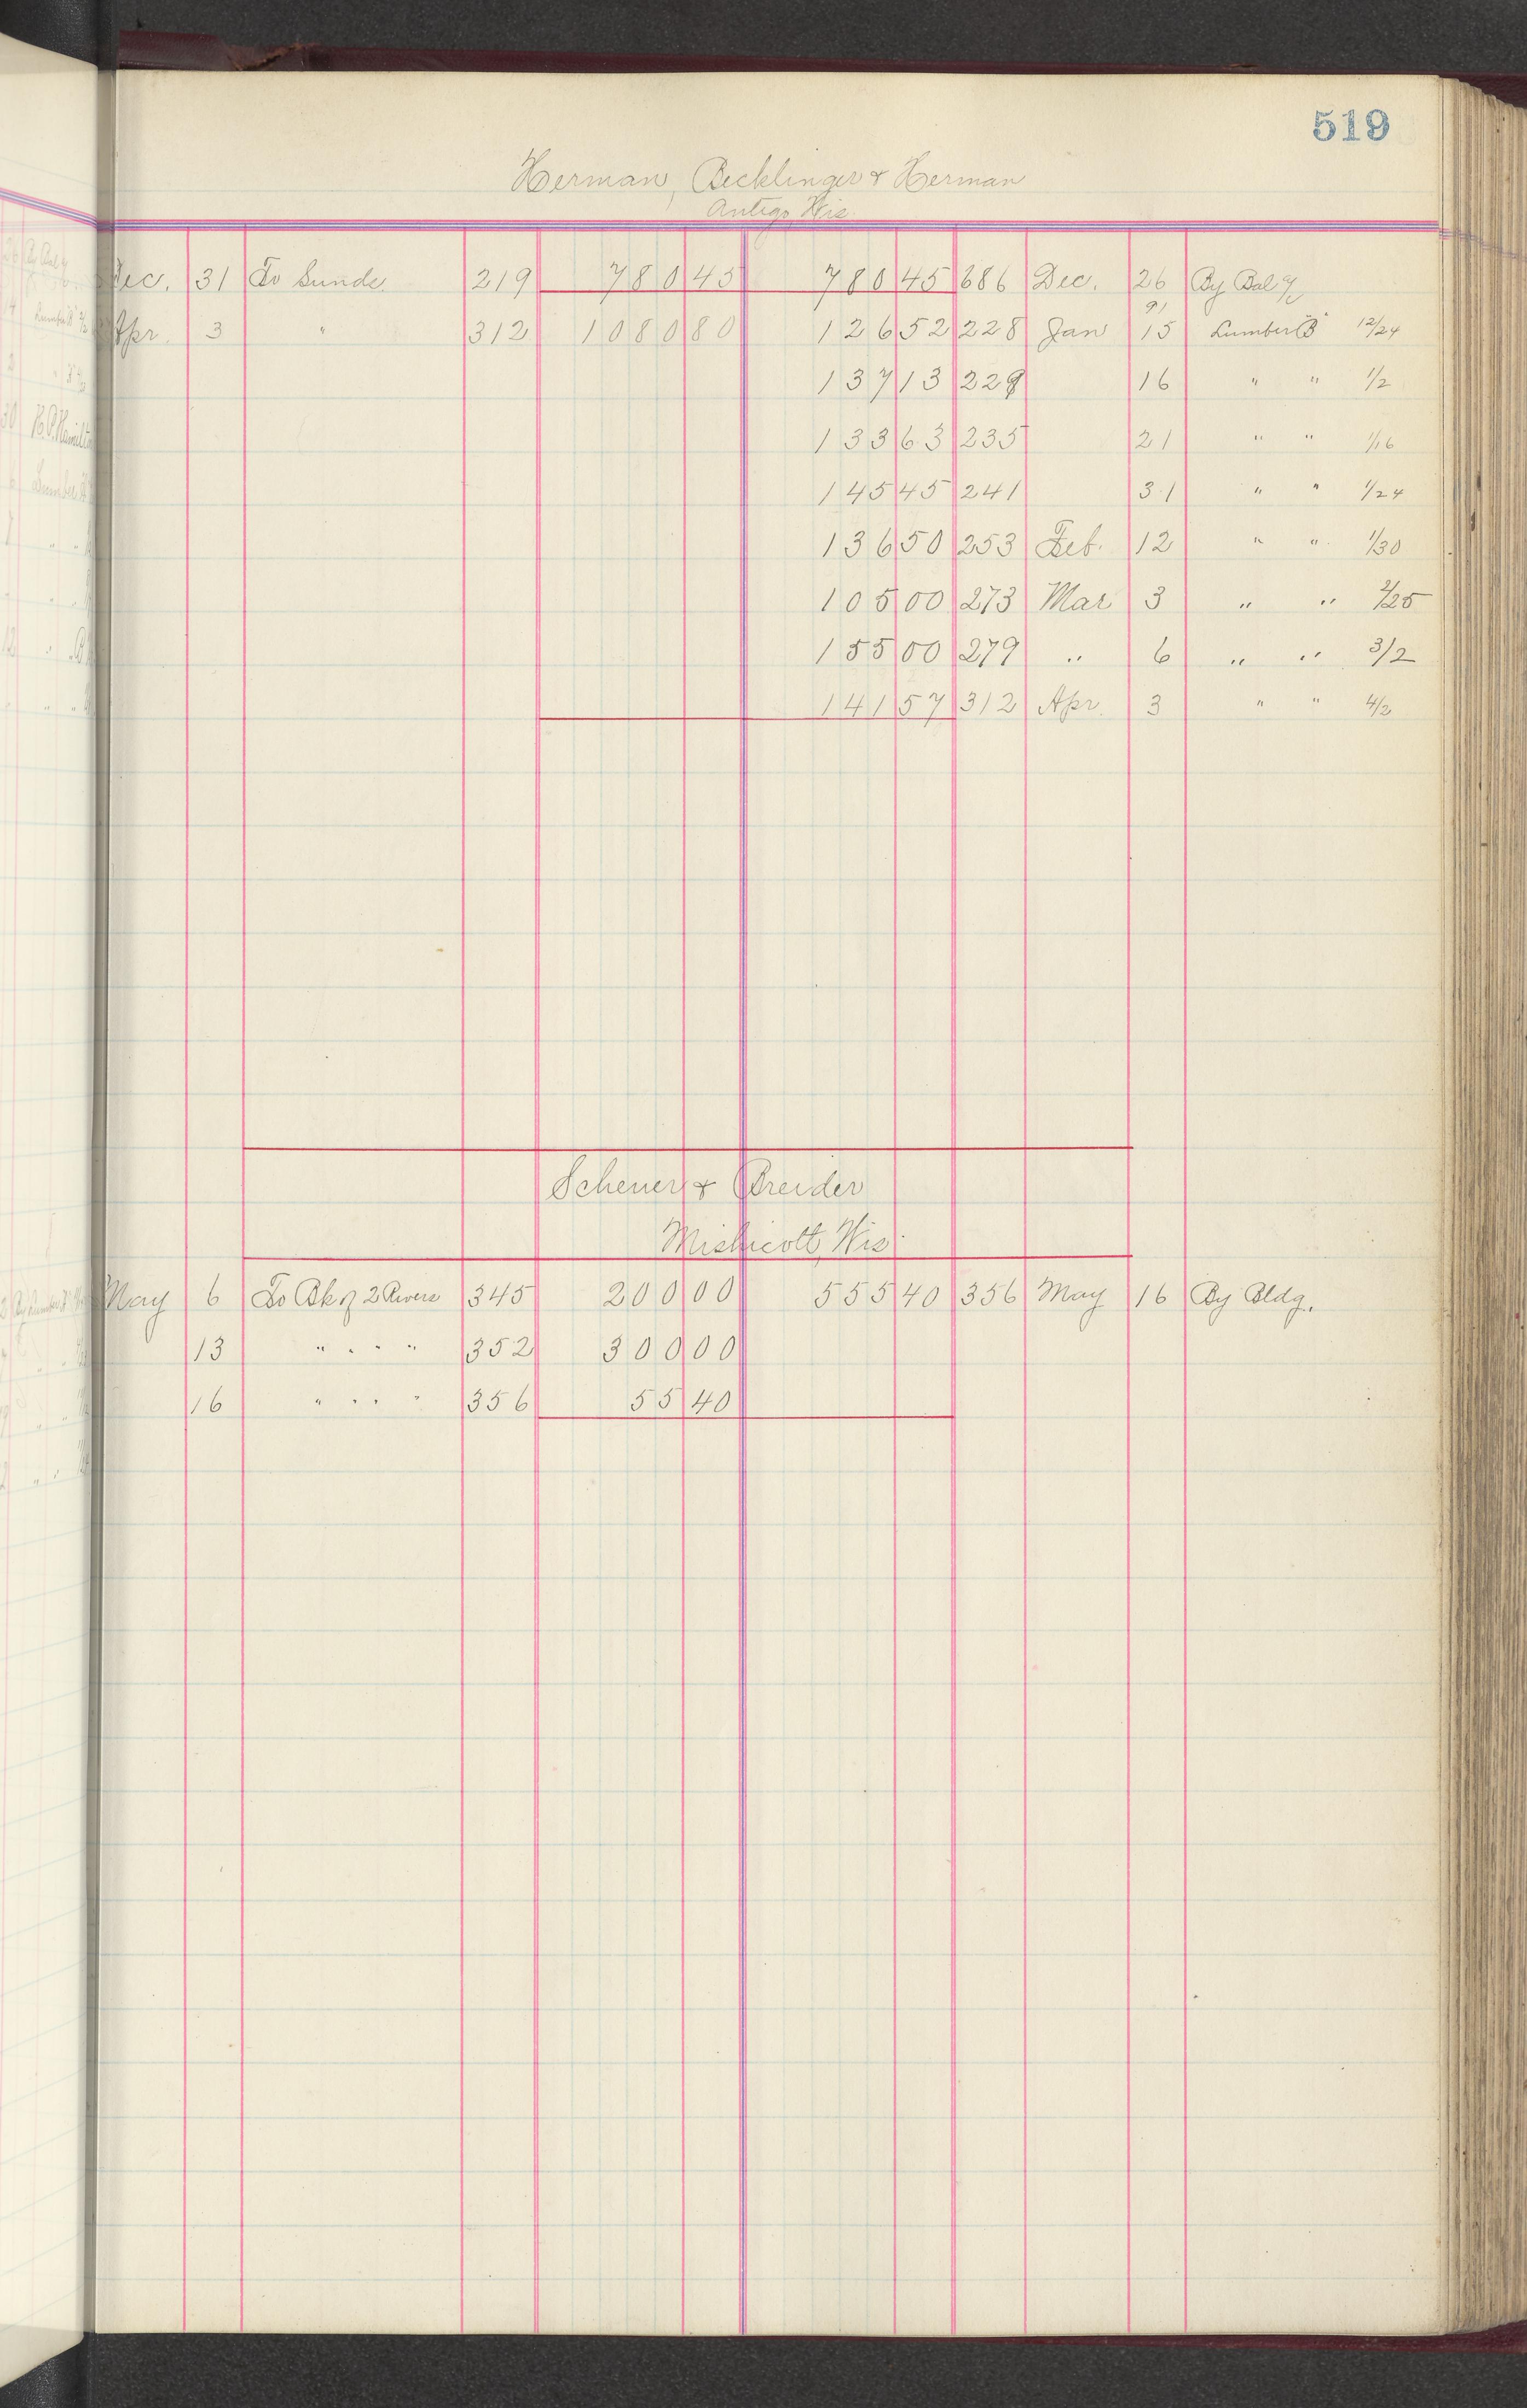 519
Herman, Becklinger & Herman
Antigo, Wis.
Dec. 31 To Sunds. 219 780 45 780 45 686 Dec. 26 By Bal of
91
Apr. 3 " 312 1080 80 126 52 228 Jan 15 Lumber "B" 12/24
137 13 229 16 " " 1/2
133 63 235 21 " " 1/16
145 45 241 31 " " 1/24
136 50 253 Feb. 12 " " 1/30
105 00 273 Mar 3 " " 2/25
155 00 279 " 6 " " 3/2
141 57 312 Apr. 3 " " 4/2
Scheuer & Breider
Mishicott, Wis.
May 6 To Bk of 2 Rivers 345 200 00 555 40 356 May 16 By Bldg.
13 " " " " 352 300 00
16 " " " " 356 55 40